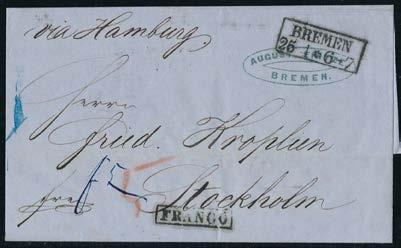 via Hamburg
BREMEN
25 1 6-7
AUGUST
BREMEN.
Herrn
Fried. Kroplien
Stockholm
frei
FRANCO